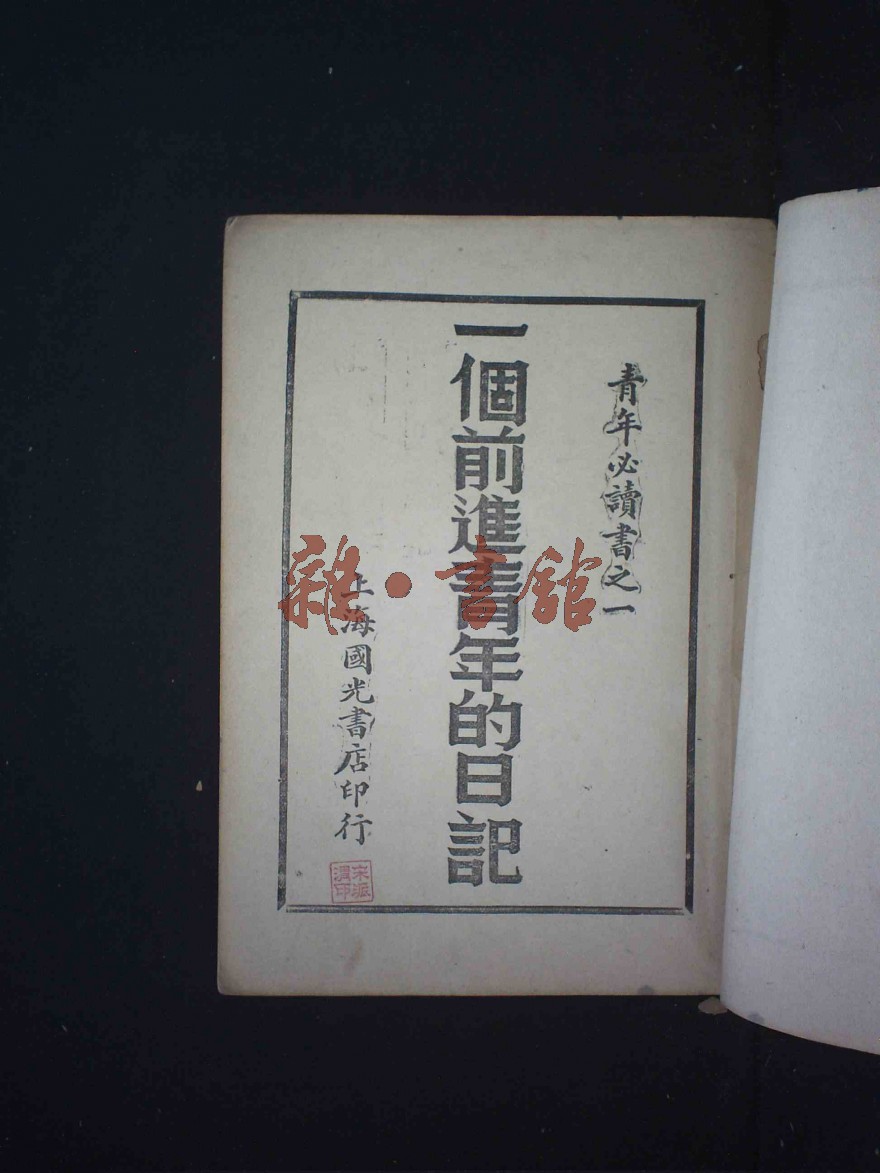 青年必讀書之一
一個前進青年的日記
上海國光書店印行
雜·書館